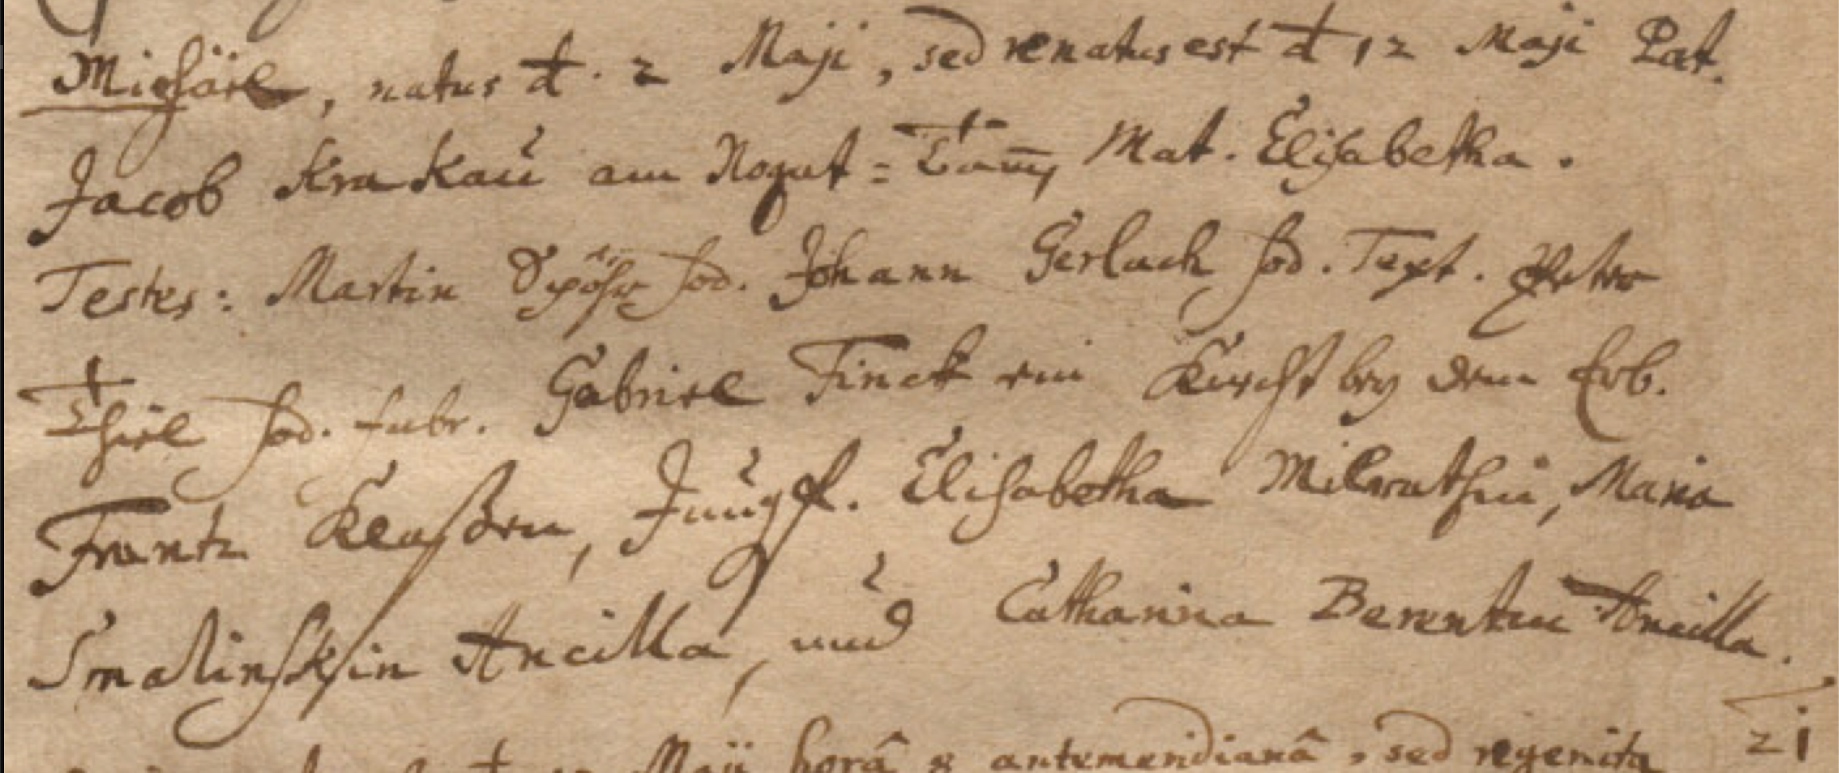 Michäel, natus d. 2 Maji, sed renatus est d 12 Maji Pat.
Jacob Krakau am Nogat = Tam̄, Mat. Elisabetha.
Testes: Martin sod. Johann Gerlach sod. Text. Peter
Thiel sod. fabr. Gabriel Finck ein Knecht bey dem Erb.
Frantz Klaßen, Jungf. Elisabetha Milrathin, Maria
Smalinskin Ancilla, und Catharina Berentin Ancilla.
Maji horâ 8 antemeridianâ, sed regenita 21